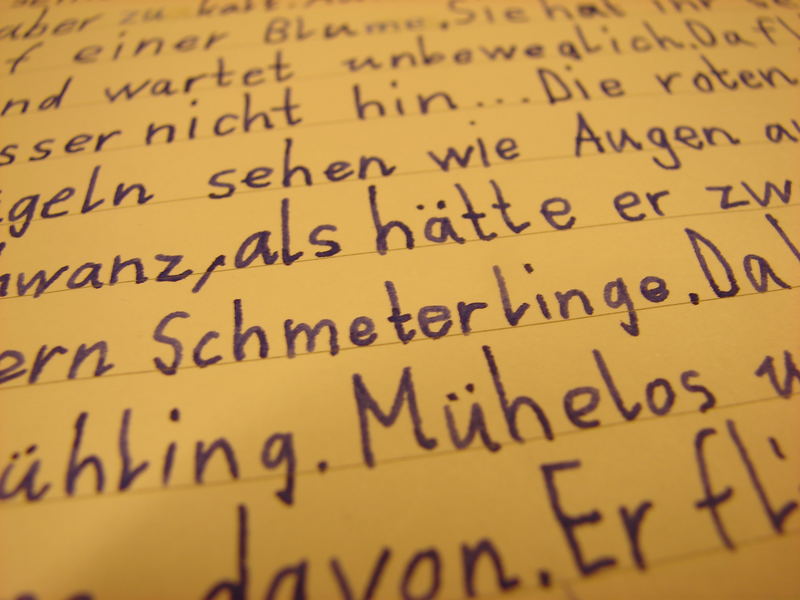 aber zu kalt.
einer Blume. Sie hat ihr
nd wartet unbeweglich. Dafl
sser nicht hin... Die roten
geln sehen wie Augen au
hwanz, als hätte er zw
ern Schmeterlinge. Da
ühling. Mühelos u
davon. Er fli